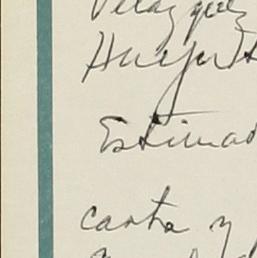 Velázquez
Huejut
Estimad
carta y